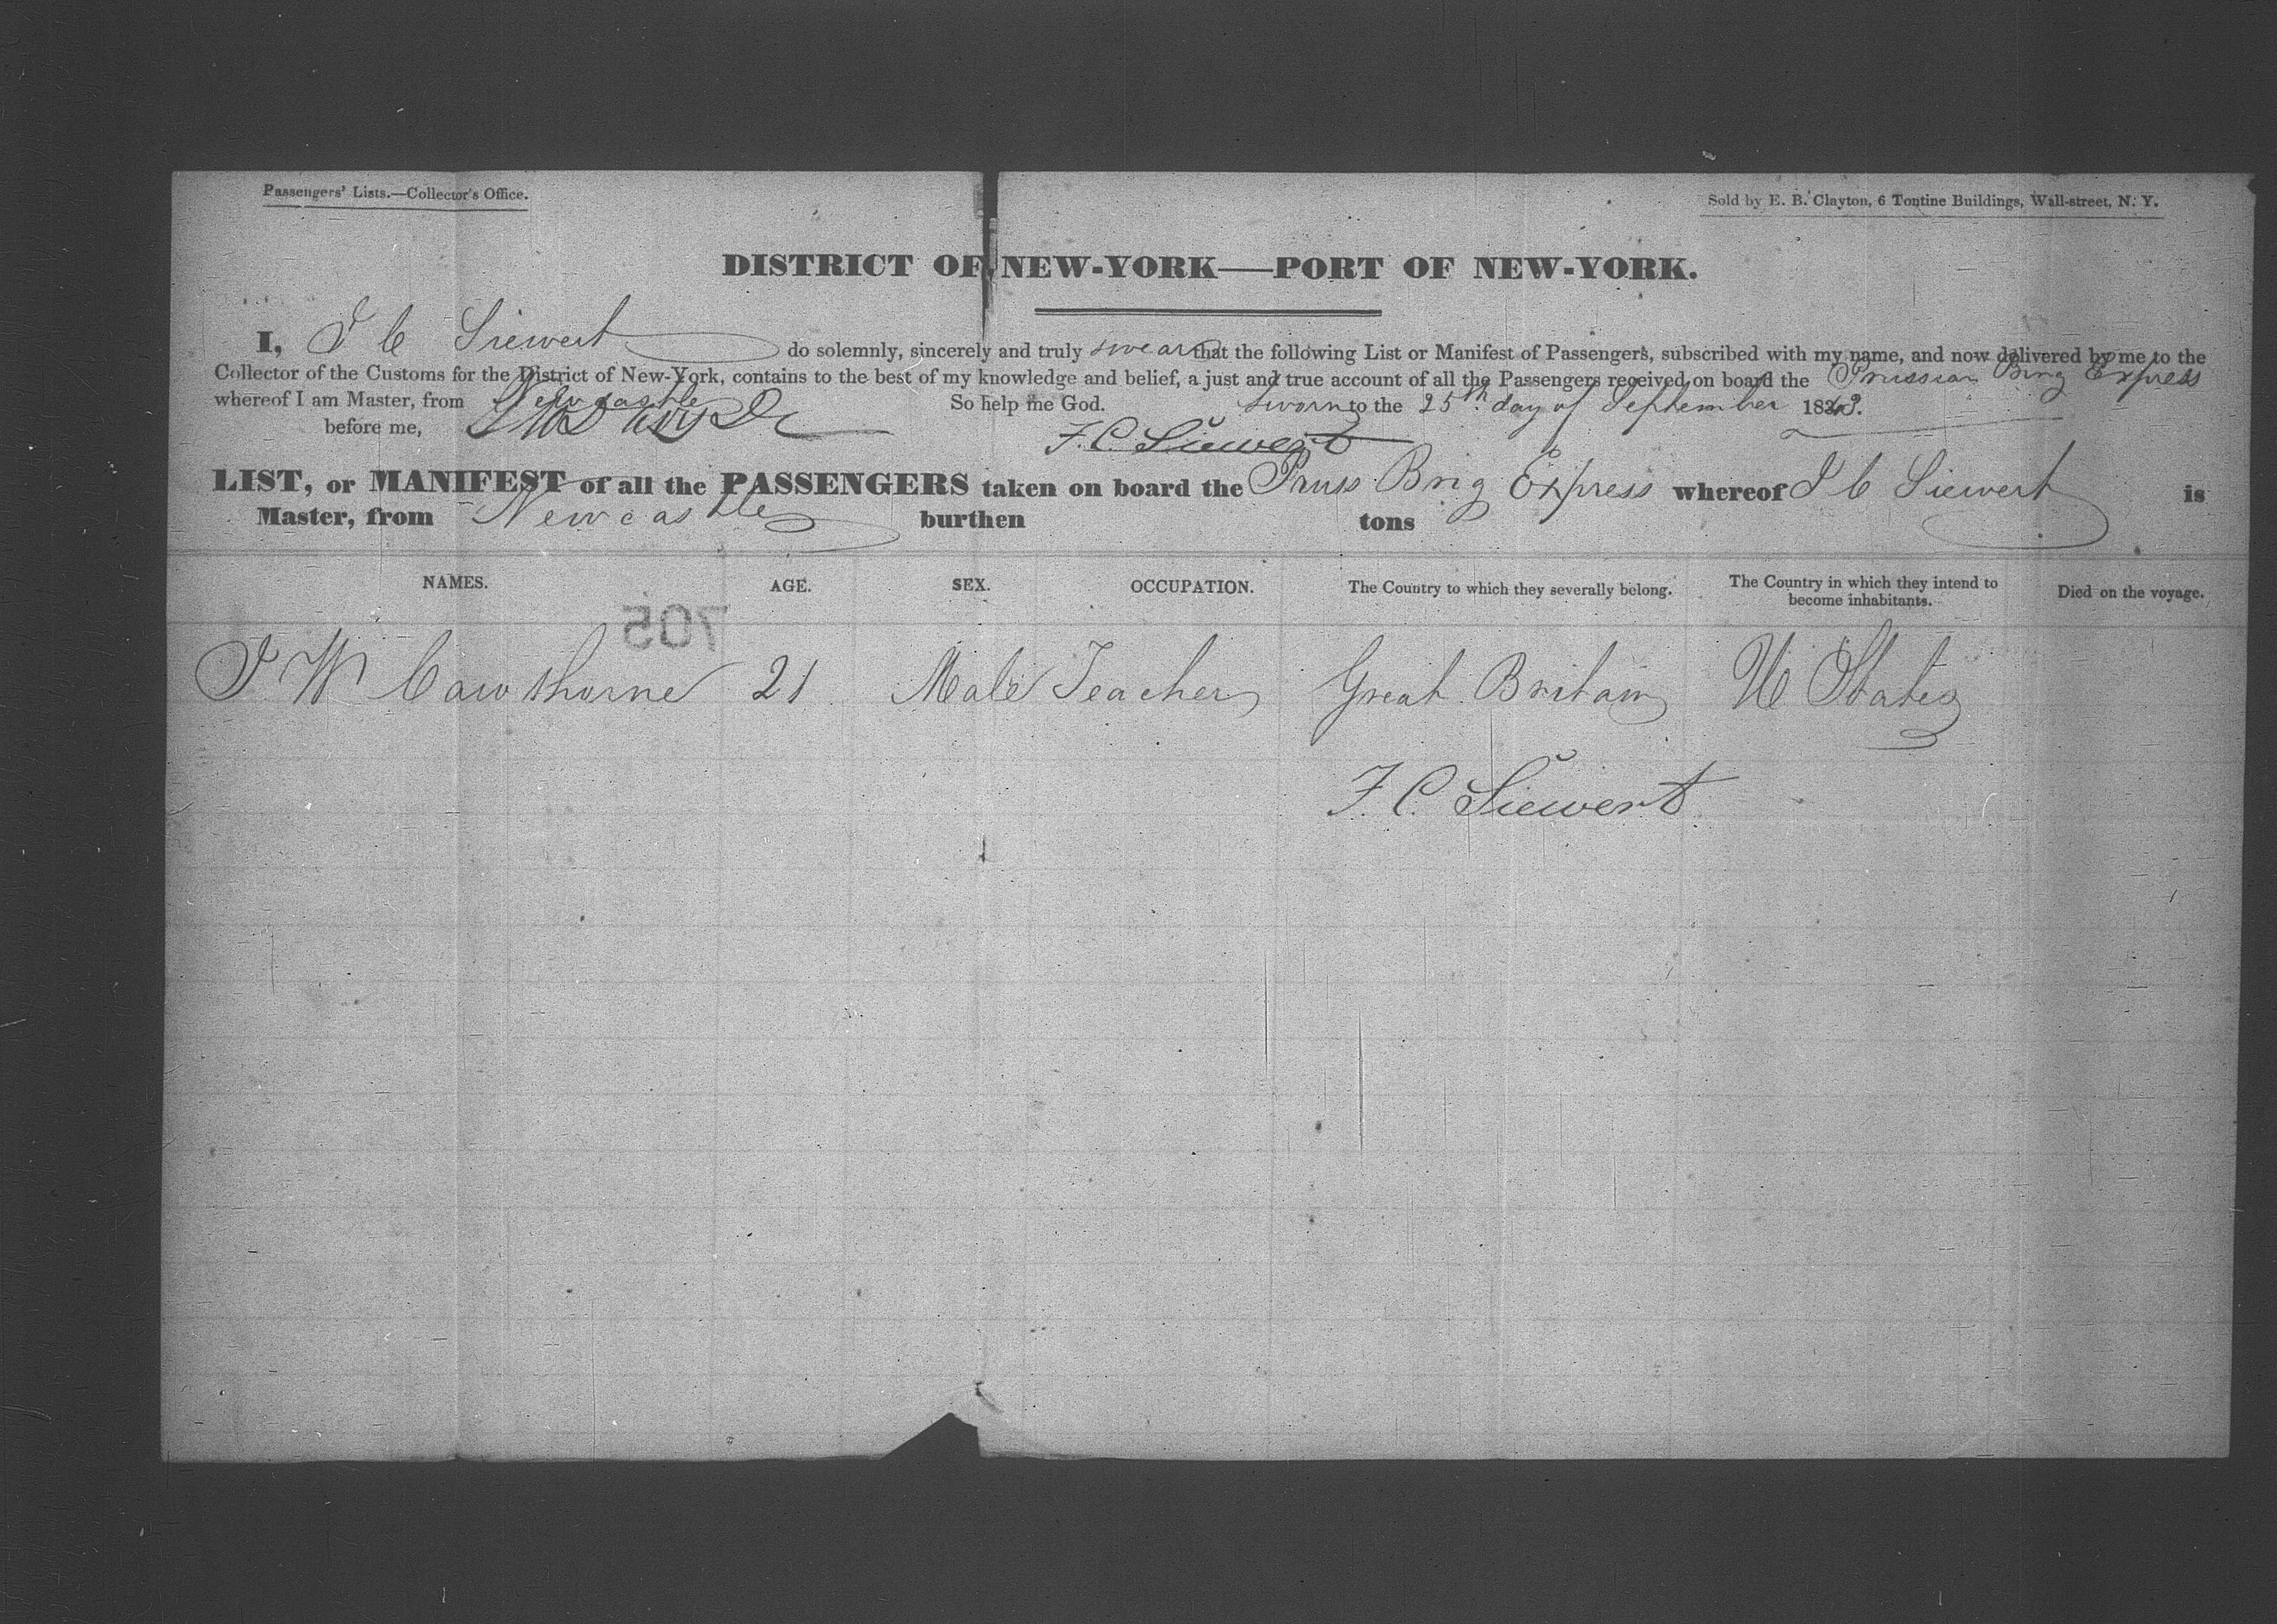 Passengers' Lists.—Collector's Office.
Sold by E. B. Clayton, 6 Tontine Buildings, Wall-street, N. Y.
DISTRICT OF NEW-YORK—PORT OF NEW-YORK.
I, F C Siewert do solemnly, sincerely and truly swear that the following List or Manifest of Passengers, subscribed with my name, and now delivered by me to the
Collector of the Customs for the District of New-York, contains to the best of my knowledge and belief, a just and true account of all the Passengers received on board the Prussian Brig Express
whereof I am Master, from Newcastle So help me God. Sworn to the 25th day of September 1843.
before me, F. C. Siewert
LIST, or MANIFEST of all the PASSENGERS taken on board the Pruss Brig Express whereof F C Siewert is
Master, from Newcastle burthen tons
NAMES. AGE. SEX. OCCUPATION. The Country to which they severally belong. The Country in which they intend to become inhabitants. Died on the voyage.
705
J W Cawthorne 21 Male Teacher Great Britain U States
F. C. Siewert